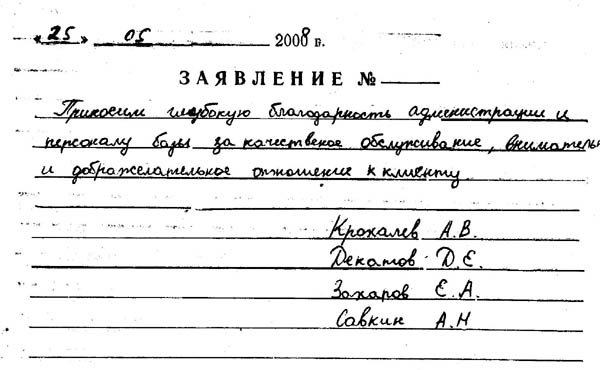 «25» 05 2008 г.
ЗАЯВЛЕНИЕ №
Приносим глубокую благодарность администрации и
персоналу базы за качественое обслуживание, внимательн
и доброжелательное отношение к клиенту
Крохалев А.В.
Декатов Д.Е.
Захаров Е.А.
Савкин А.Н